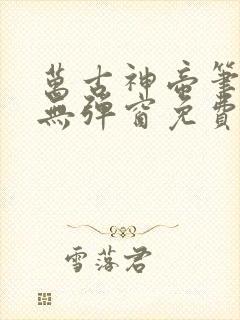 萬古神帝筆
無彈窗免費
雪落君